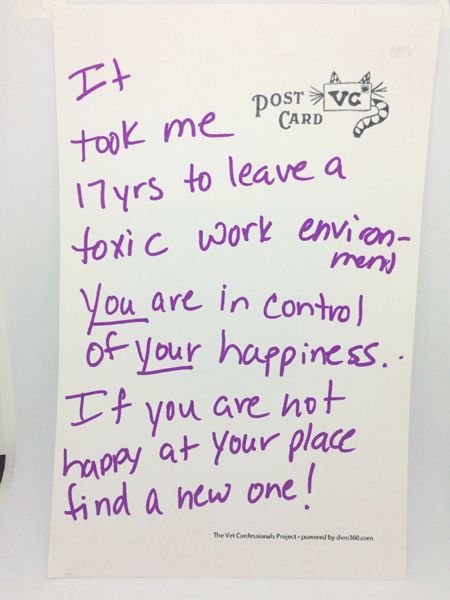 It
POST
VC
CARD
took me
17yrs to leave a
toxic work environ-
ment
You are in control
of your happiness..
If you are not
happy at your place
find a new one!
The Vet Confessionals Project • powered by dvm360.com